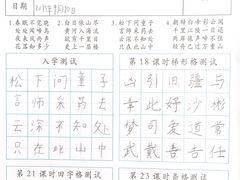 日期
1.春眠不觉晓
处处闻啼鸟
夜来风雨声
花落知多少
2.白日依山尽
黄河入海流
欲穷千里目
更上一层楼
3.松下问童子
言师采药去
只在此山中
云深不知处
4.朝辞白帝彩云间
千里江陵一日还
两岸猿声啼不住
轻舟已过万重山
入学测试
松下问童子
言师采药去
云深不知处
只在此山中
第18课时梯形格测试
凶引旧疆与
幸此好沙彬
梦可爱道常
武戴吾吾任
第21课时田字格测试
第23课时条格测试